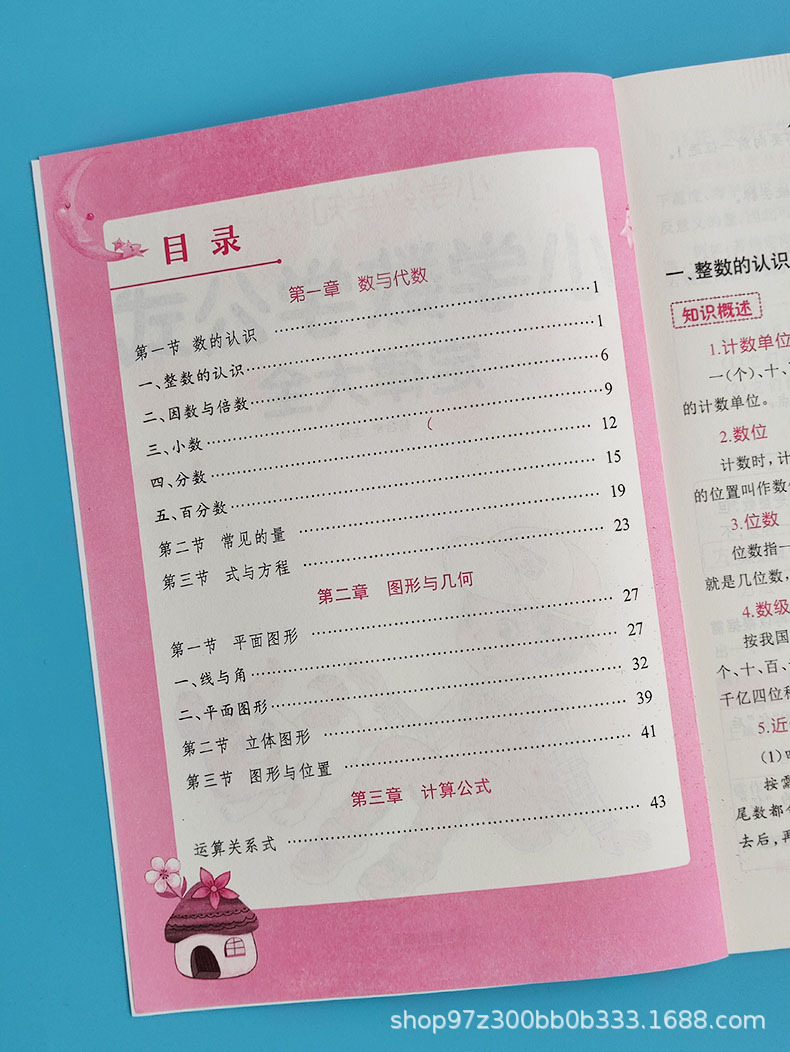 目 录
第一章 数与代数
第一节 数的认识 ………………………………………1
一、整数的认识………………………………………1
二、因数与倍数………………………………………6
三、小数………………………………………9
四、分数………………………………………12
五、百分数………………………………………15
第二节 常见的量 ………………………………………19
第三节 式与方程 ………………………………………23
第二章 图形与几何
第一节 平面图形 ………………………………………27
一、线与角………………………………………27
二、平面图形………………………………………32
第二节 立体图形 ………………………………………39
第三节 图形与位置 ………………………………………41
第三章 计算公式
运算关系式 ………………………………………43
一、整数的认识
知识概述
1.计数单位
一(个)、十、
的计数单位。
2.数位
计数时,计
的位置叫作数
3.位数
位数指一
就是几位数,
4.数级
按我国
个、十、百、
千亿四位
5.近
(1)
按需
尾数都
去后,再
shop97z300bb0b333.1688.com